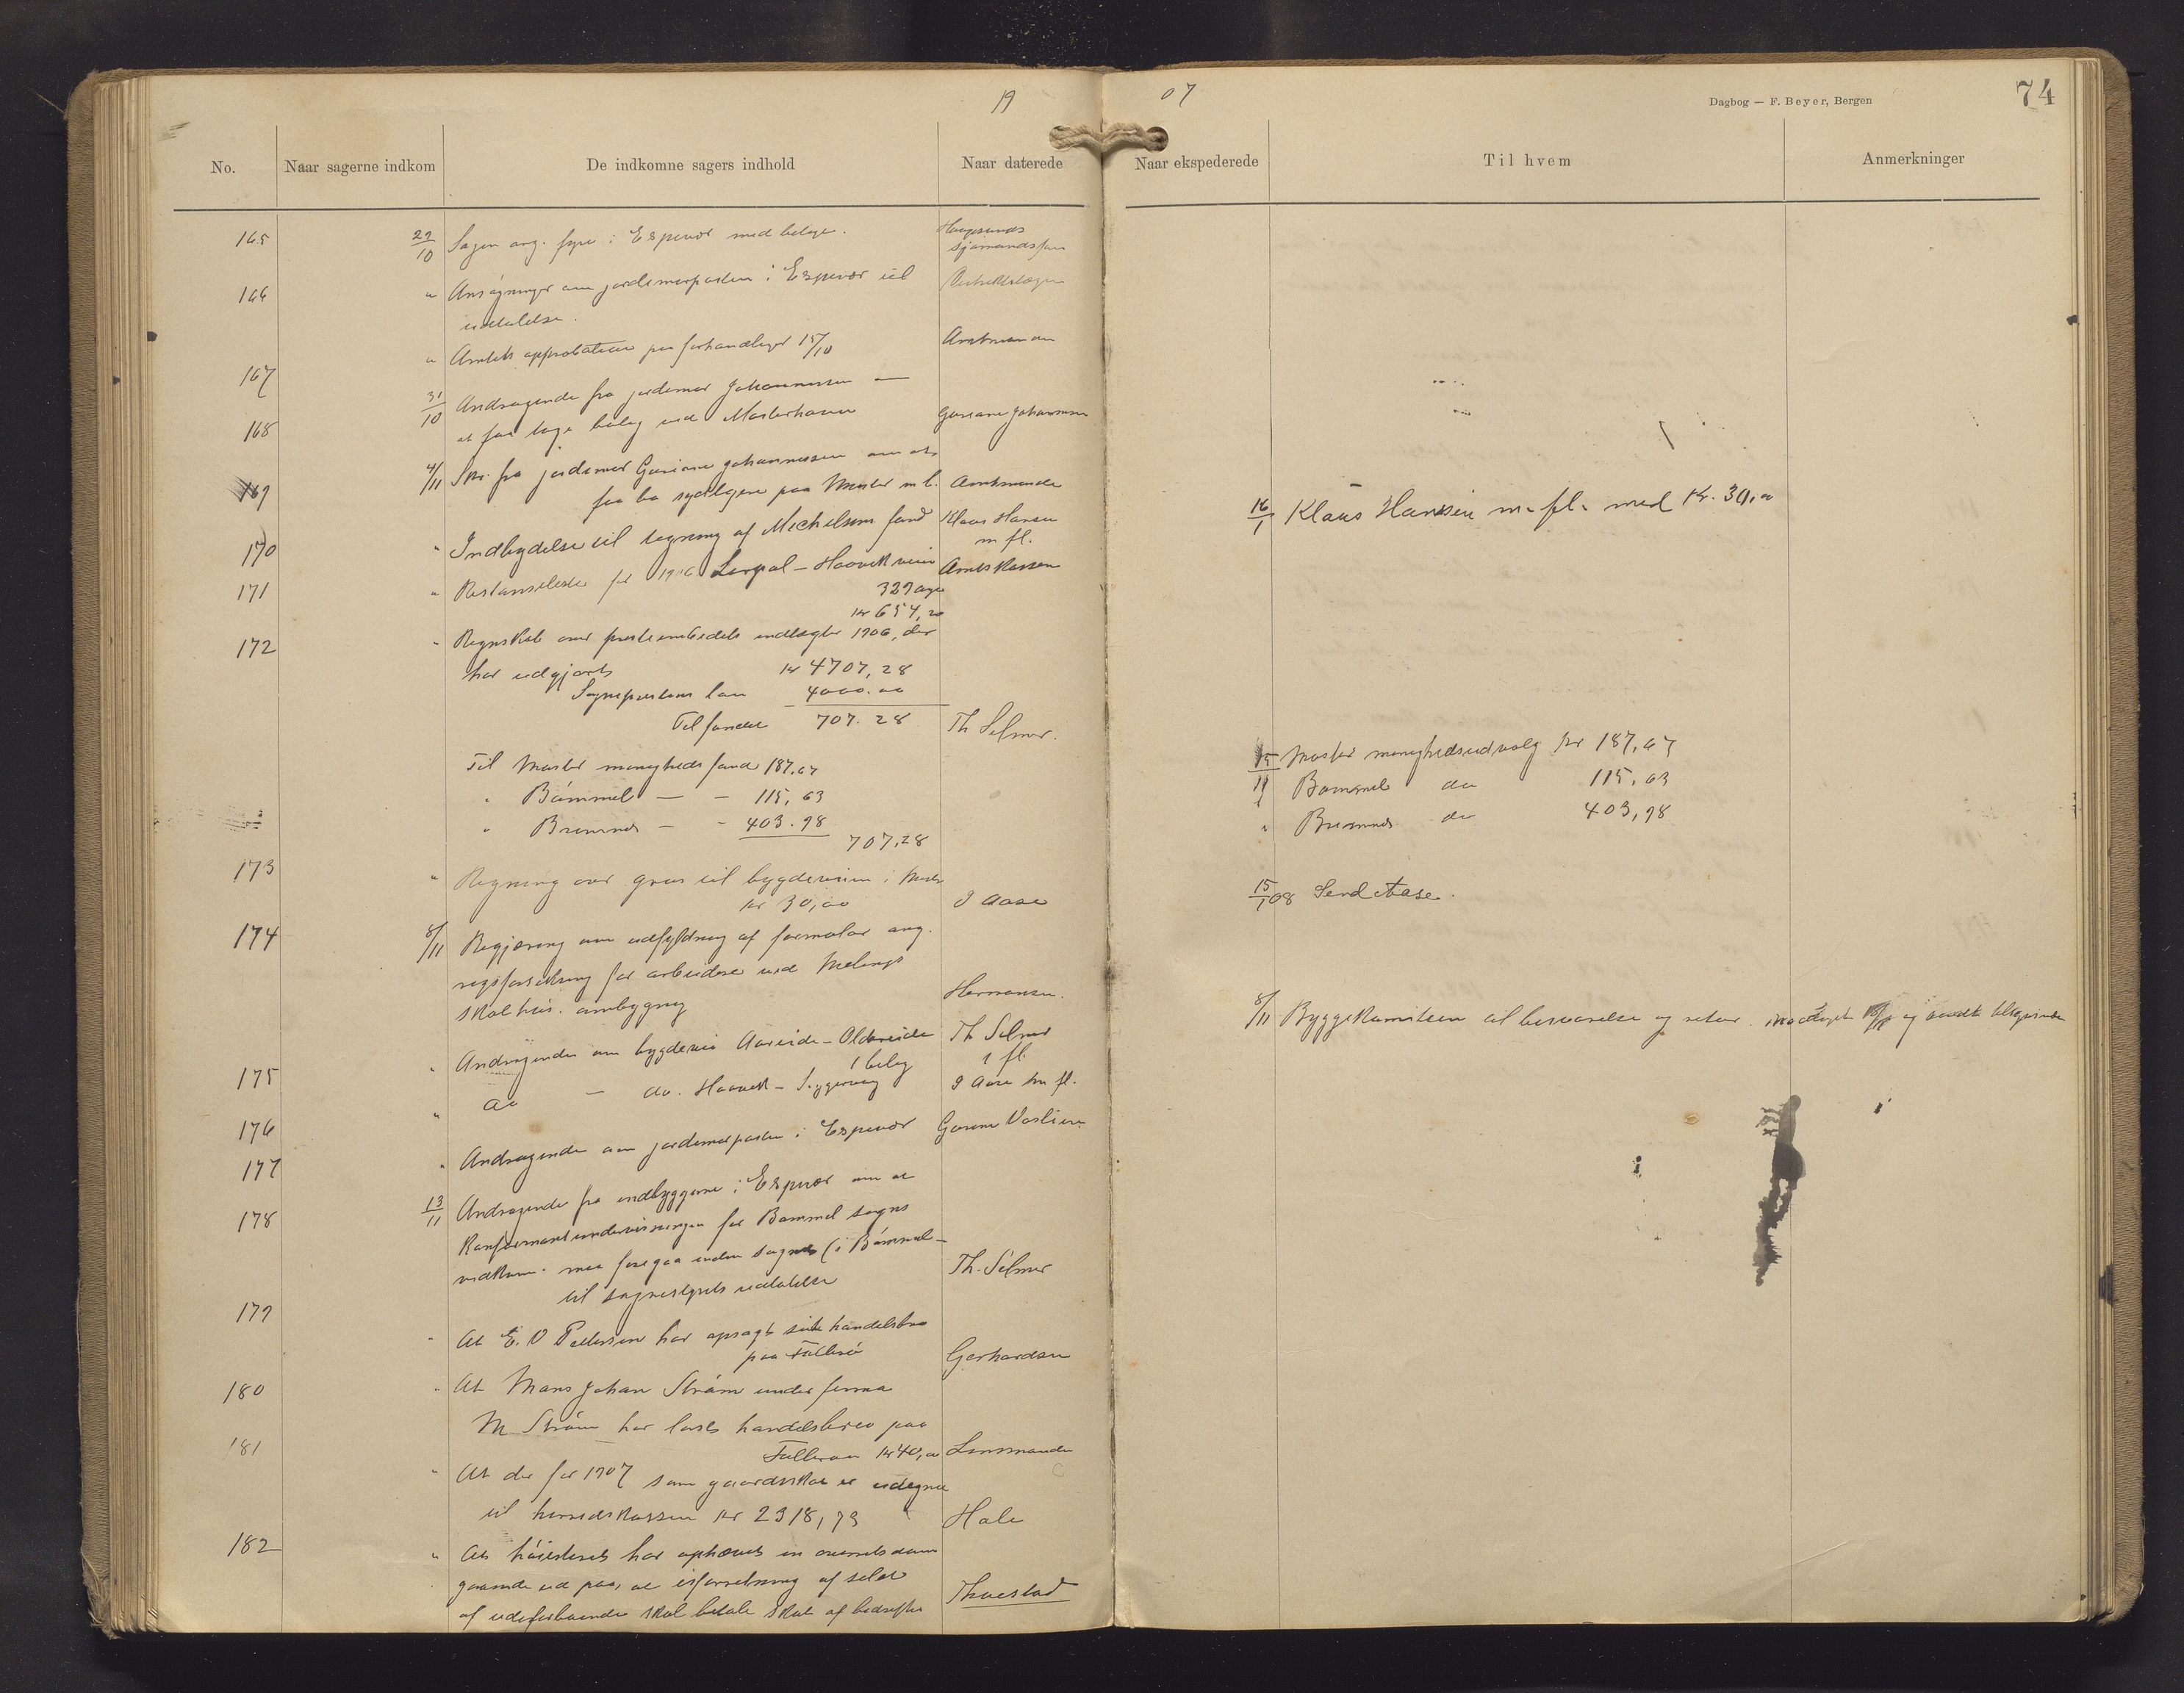 19 07
Dagbog — F. Beyer, Bergen
74
No. Naar sagerne indkom De indkomne sagers indhold Naar daterede Naar ekspederede Til hvem Anmerkninger
165 29/10 Sagen ang. fyre i Espevær med belage. Haugesunds
sjømandsfor
166 " Ansøgninger om jordemorposten i Espevær til Distriktslægen
udtalelse.
167 " Amtets approbation paa forhandlinger 15/10 Amtmanden
168 31/10 Andragende fra jordemor Johannessen —
at faa tage bolig ved Mosterhavn Gusiane Johannessen
169 4/11 Skr. fra jordemor Gusiane Johannessen om at
faa bo sydligere paa Moster m b. Amtmanden
170 " Indbydelse til tegning af Michelsens fond Klaus Hansen
m fl.
16/1 Klaus Hansen m. fl. med Kr. 30,00
171 " Restanseliste for 1906 - Haavik veien Amtskassen
329 øre
kr 654,20
172 " Regnskab over presteembedets indtægter 1906, der
har udgjort kr 4707,28
Sognepresten løn 4000.00
Til fondet 707.28 Th Selmer.
Til Moster menigheds fond 187.67
" Bømmel — - 115,63
" Bremnes — - 403.98
707,28
15/11 Moster menighedsudvalg kr 187,67
" Bømmel do 115,63
" Bremnes do 403,98
173 " Regning over grus til bygdeveien i Moster
kr 30,00 J Aase
15/1 08 Send Aase.
174 8/11 Begjæring om udfyldning af formular ang.
for arbeidere ved Melings
skolehus. ombygning Hermansen.
8/11 Byggekomiteen til besvarelse og retur. og sendt
175 " Andragende om bygdevei Aareide - Oldereide Th Selmer
1 bilag 1 fl.
176 " do — do. Haavik - J Aase m fl.
177 " Andragende om jordemorposten i Espevær
178 13/11 Andragende fra indbyggerne i Espevær om at
Konfirmantundervisningen for Bømmel sogns
vedkom. maa foregaa inden sognet (i Bømmel -
til sognestyrets udtalelse Th. Selmer
179 " At E. O Pettersen har opsagt sit handelsbrev
paa Fillerø Gerhardsen
180 " At Mons Johan Strøm under firma
M Strøm har løst handelsbrev paa
kr 40,00 Lensmanden
181 " At der for 1907 som gaardskat er udlignet
til herredskassen kr 2318,73 Hole
182 " At høiesteret har ophævet en overretsdom
gaaende ud paa, at isforsetning af sild
af udenbyboende skal betale skat af bedriften Thuestad